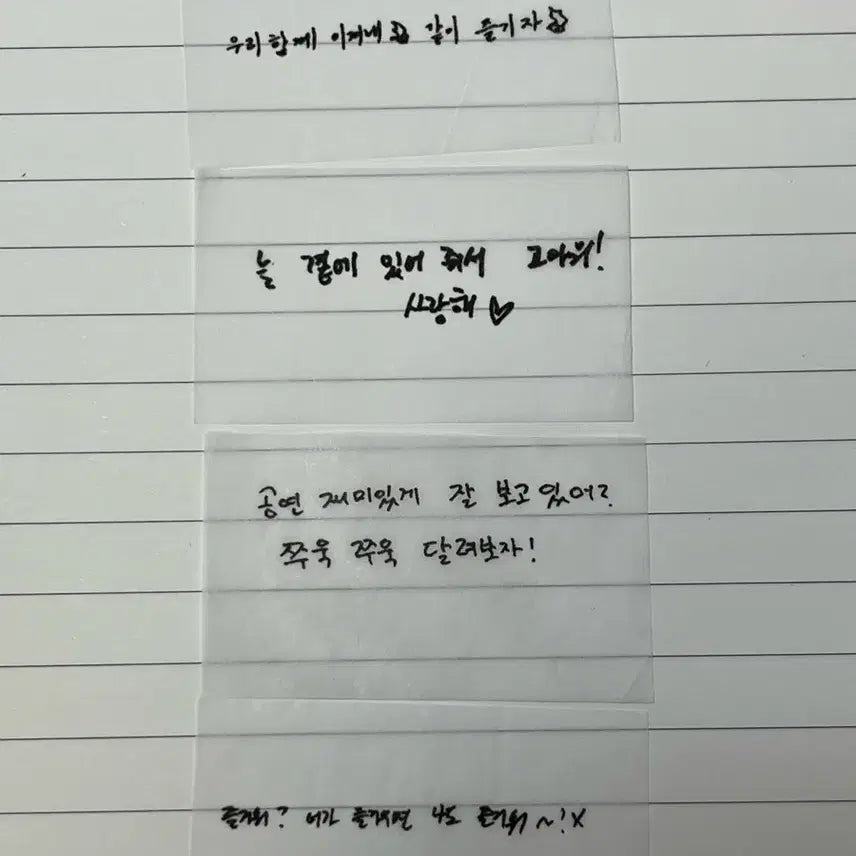 우리 함께 이겨내고 같이 즐기자
늘 곁에 있어 줘서 고마워!
사랑해 ♡
공연 재미있게 잘 보고 있어?
쭈욱 쭈욱 달려보자!
즐거워? 너가 즐거우면 나도 즐거워 ~!X